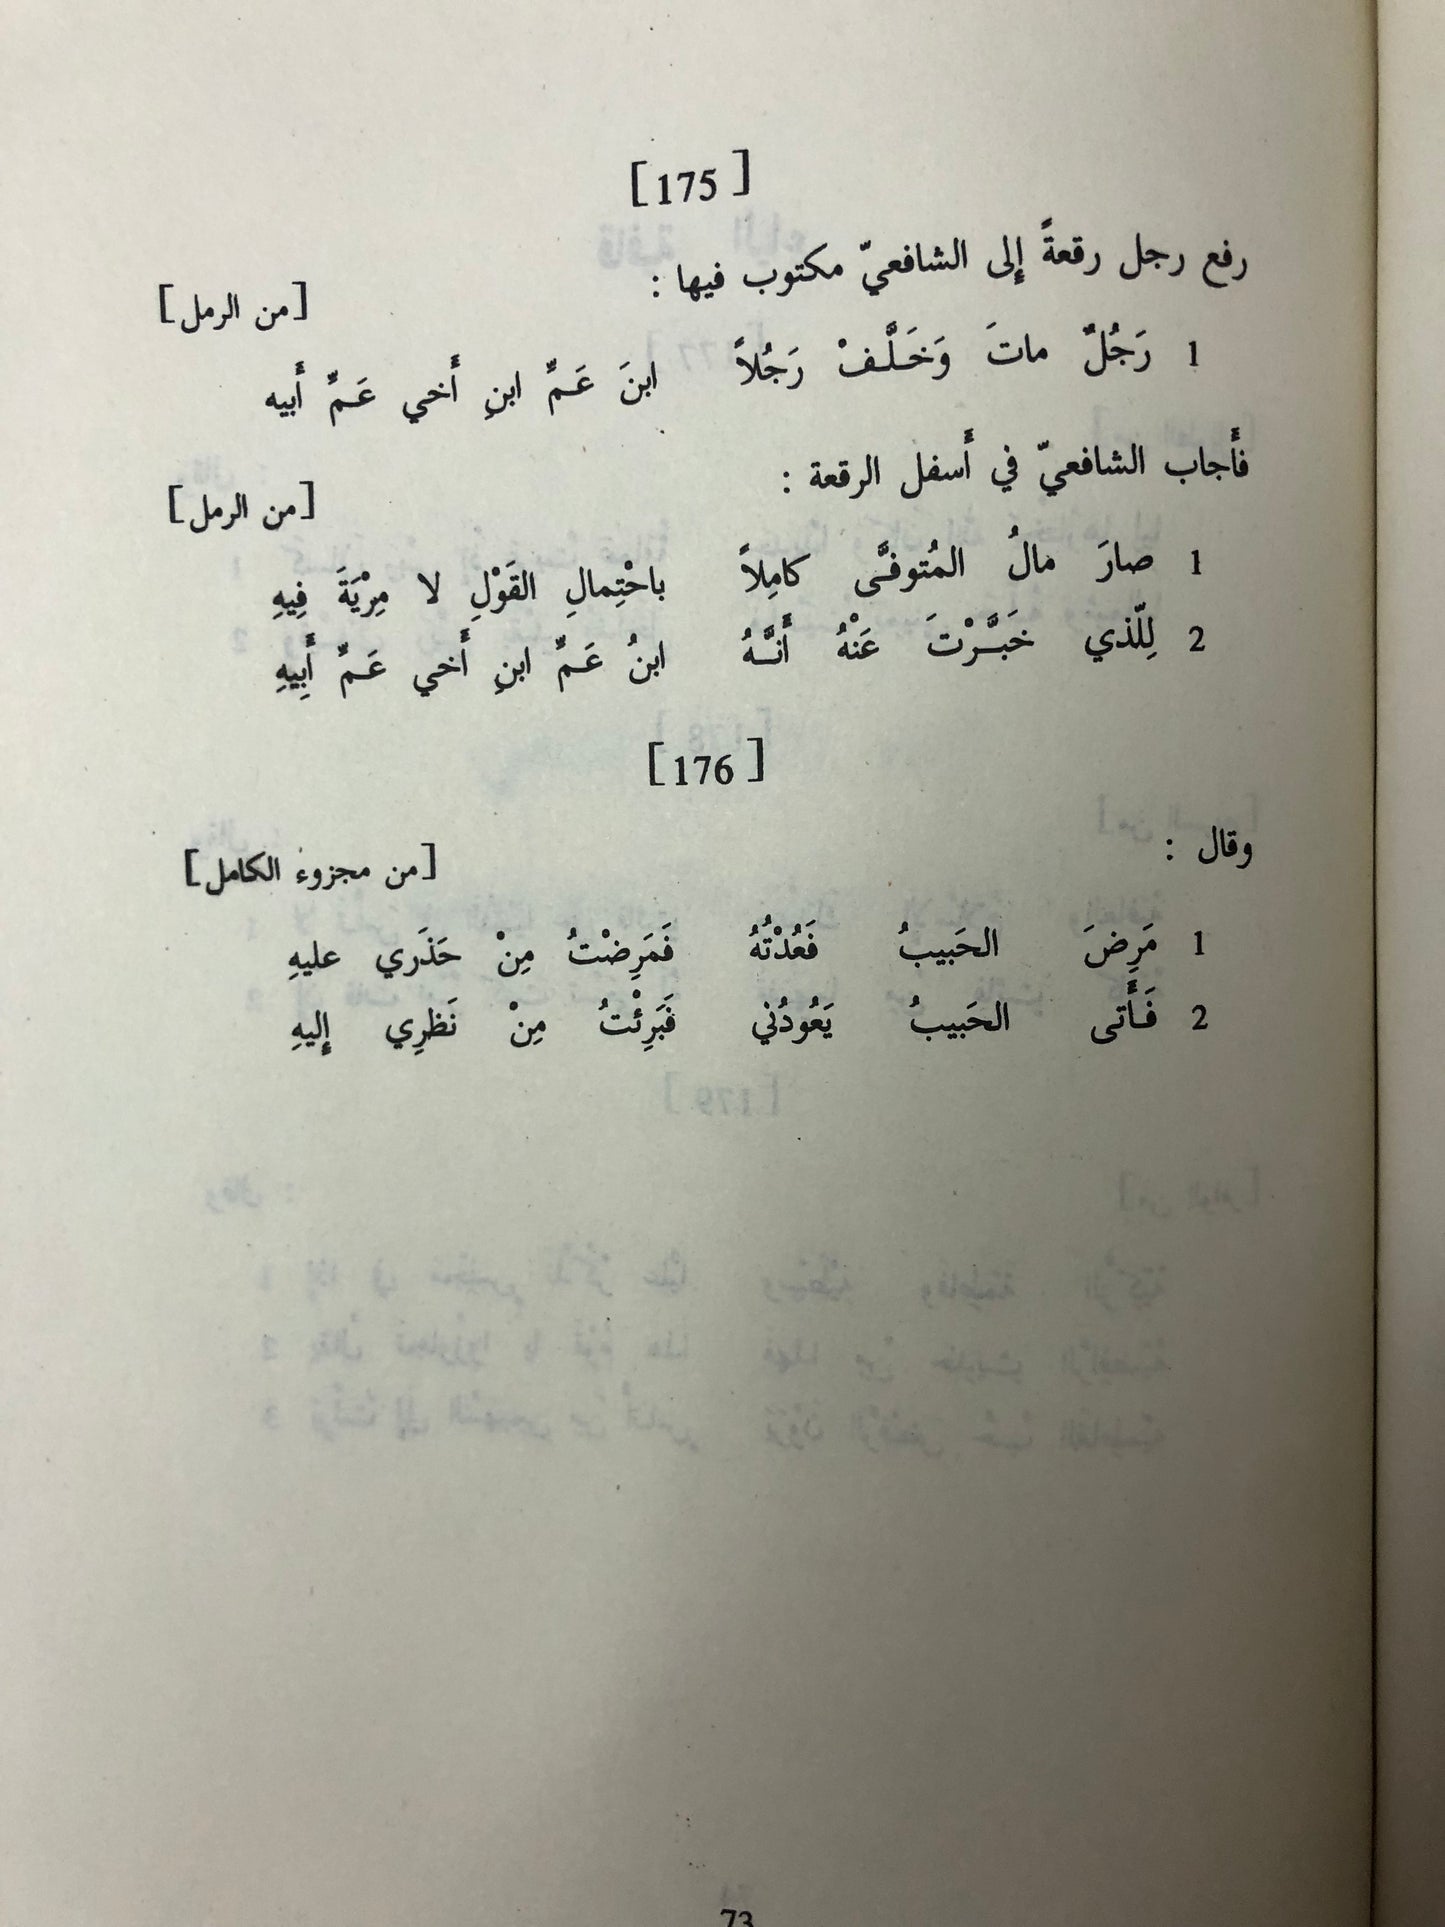 [175]
رفع رجل رقعةً إِلى الشافعيّ مكتوب فيها :
[من الرمل]
1 رَجُلٌ ماتَ وَخَـلَّـفْ رَجُلاً ابنَ عَـمٍّ ابنِ أَخي عَـمٍّ أَبيه
فأَجاب الشافعيّ في أَسفل الرقعة :
[من الرمل]
1 صارَ مالُ المُتوفَّى كامِلاً باحْتِمالِ القَوْلِ لا مِرْيَةَ فِيهِ
2 لِلّذي خَبَّـرْتَ عَنْهُ أَنَّـهُ ابنُ عَـمٍّ ابنِ أَخي عَـمٍّ أَبِيهِ
[176]
وقال :
[من مجزوء الكامل]
1 مَرِضَ الحَبيبُ فَعُدْتُهُ فَمَرِضْتُ مِنْ حَذَري عليهِ
2 فَـأَتى الحَبيبُ يَعُودُني فَبَرِئْتُ مِنْ نَظرِي إِليهِ
73